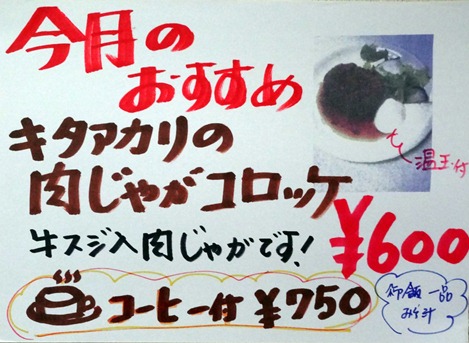 今月の
おすすめ
キタアカリの
肉じゃがコロッケ
温玉付
牛スジ入肉じゃがです!
¥600
コーヒー付 ¥750
御飯 一品
みそ汁